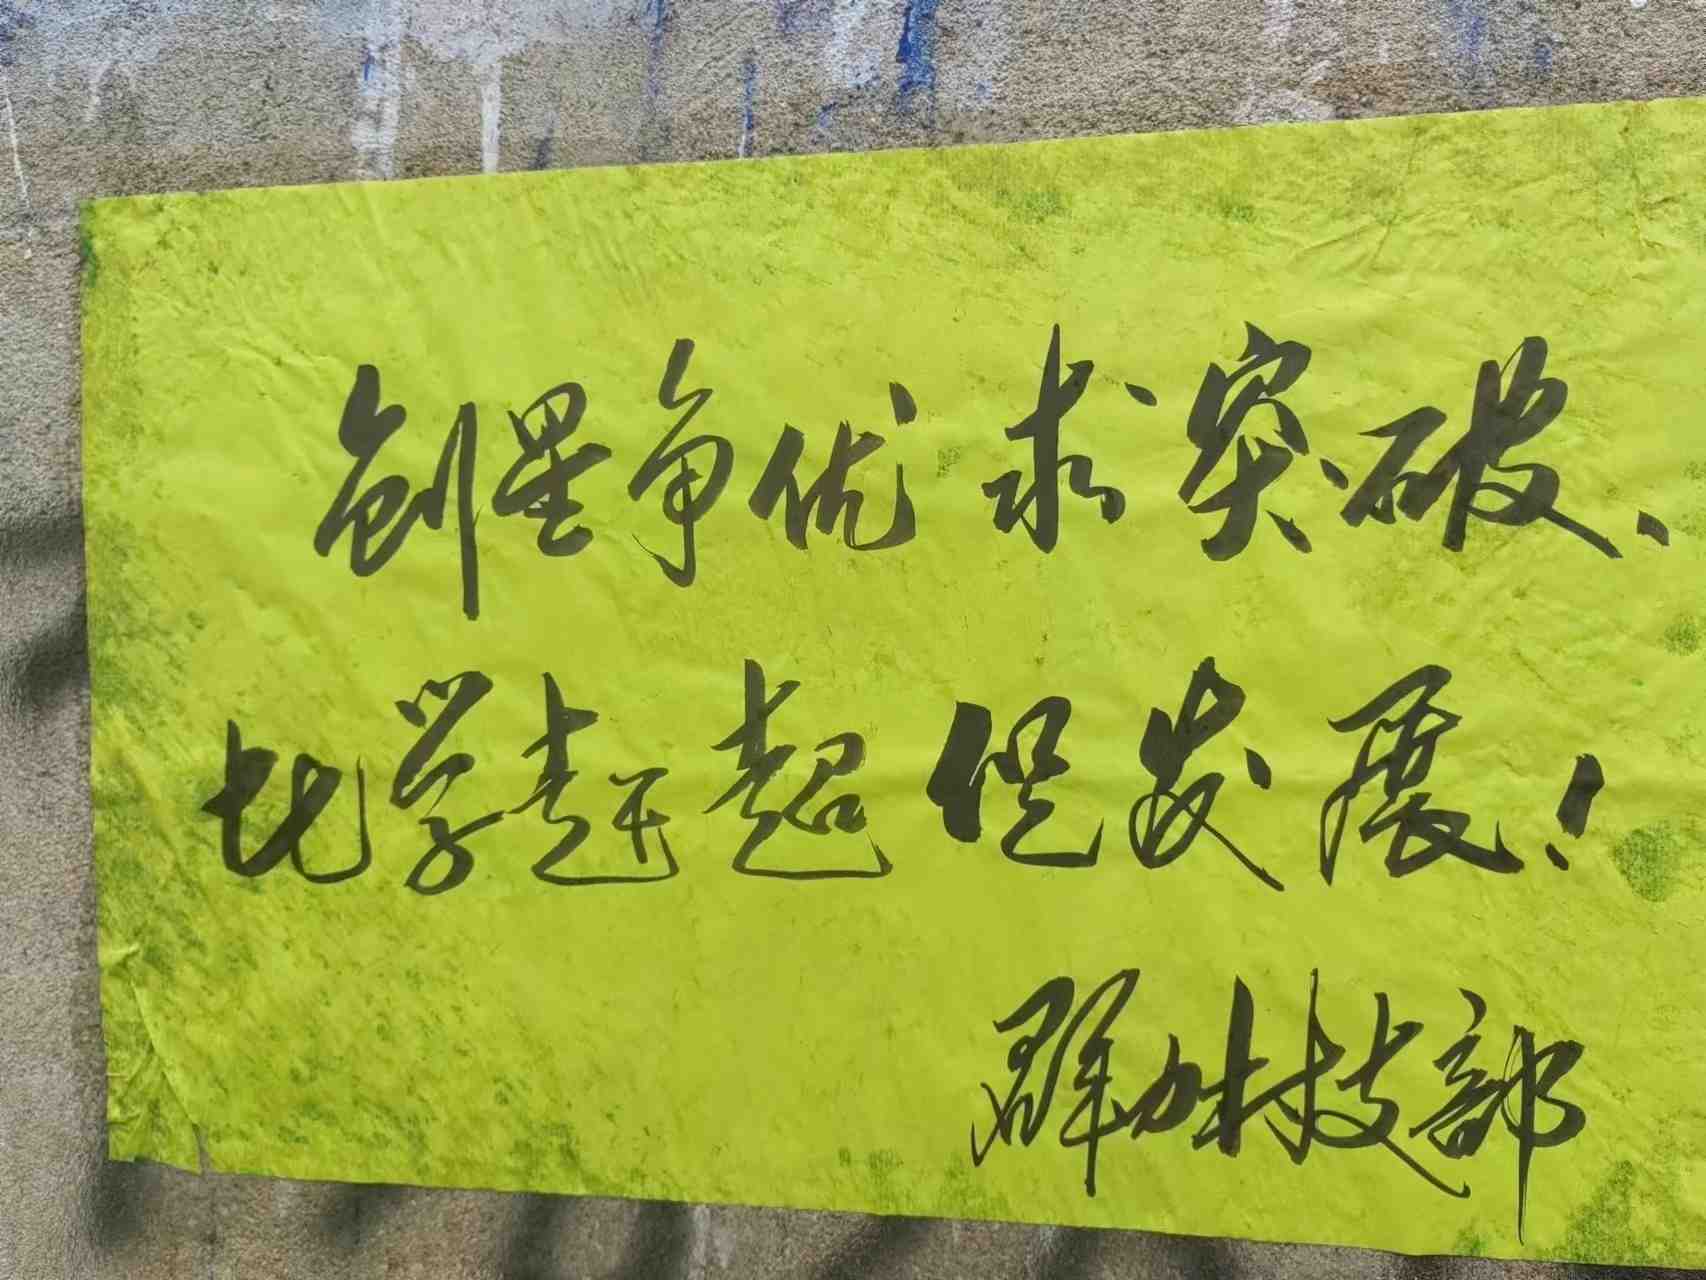 创星争优求突破、
比学赶超促发展！
群外技部